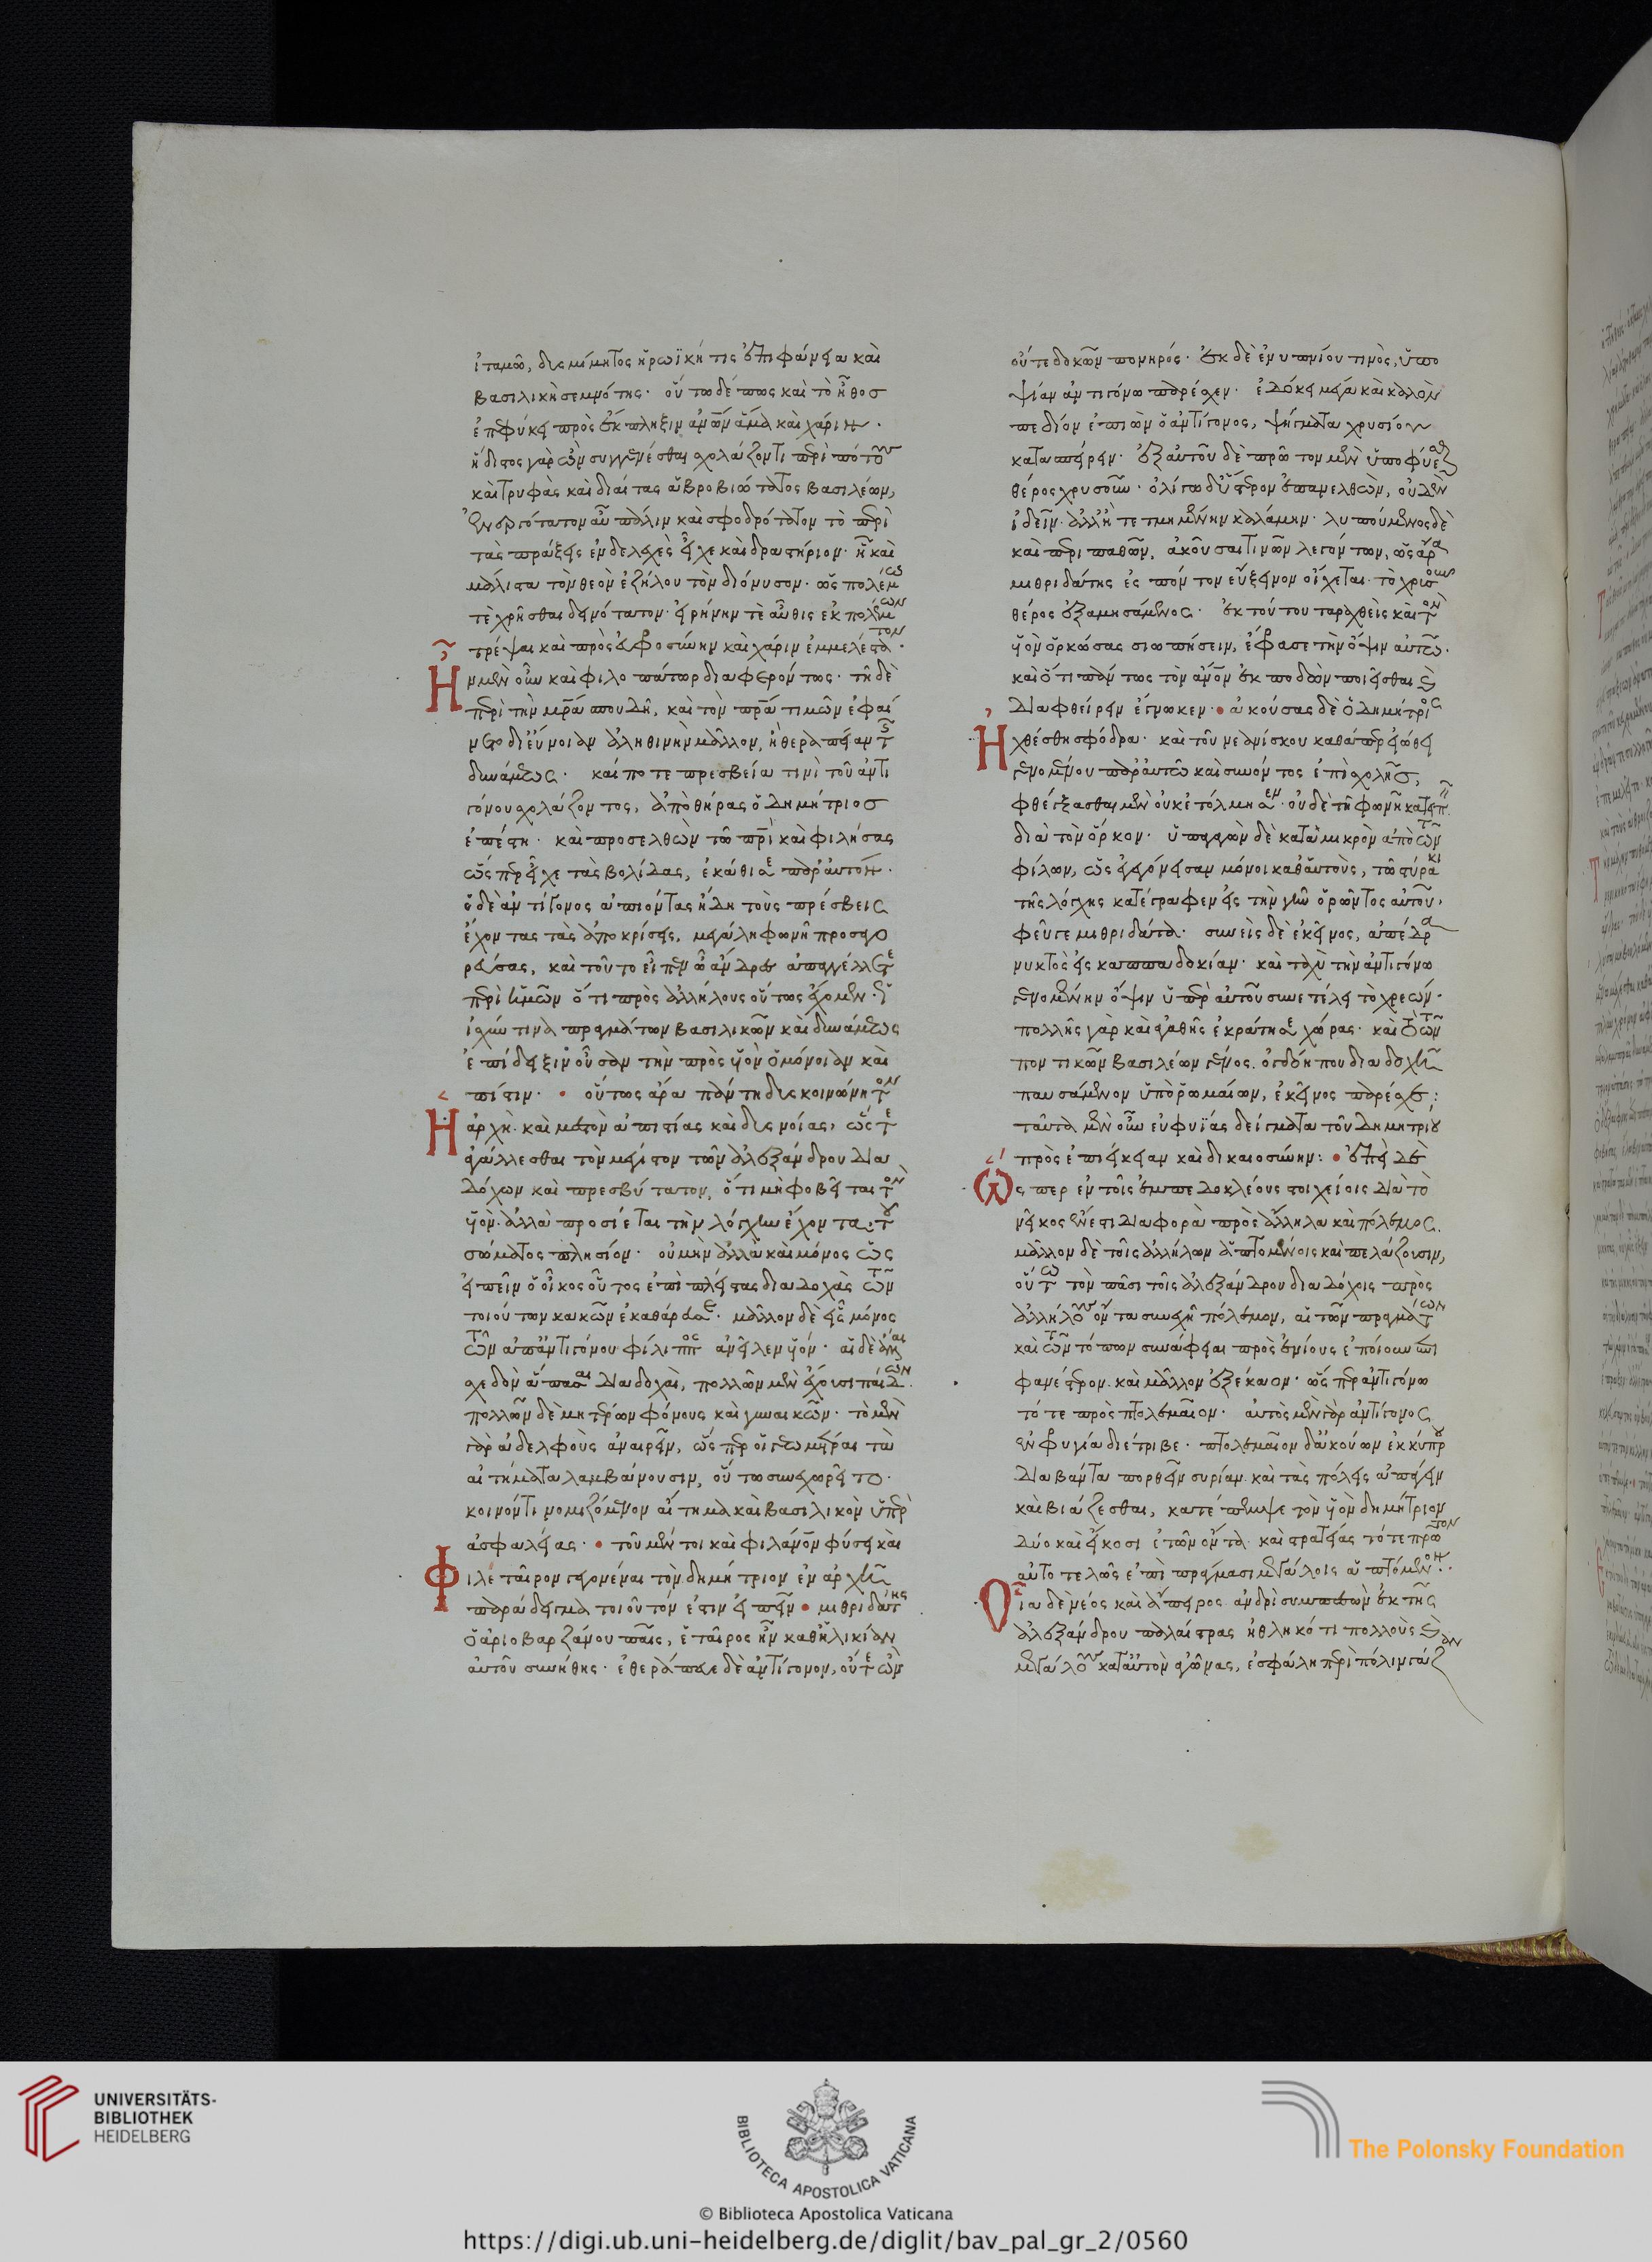 ἰταμῶ, δυσμίμητος ἡρωϊκή τις ἐπιφάνεια καὶ
βασιλικὴ σεμνότης· οὕτω δέ πως καὶ τὸ ἦθοσ
ἐπεφύκει πρὸς ἔκπληξιν ἀνων ἅμα καὶ χάριν·
ἥδιστος γὰρ ὢν συγγενέσθαι σχολάζοντι περὶ πότους
καὶ τρυφὰς καὶ διαίτας ἁβροβιώτατος βασιλέων,
ἐνεργότατον αὖ πάλιν καὶ σφοδρότατον τὸ περὶ
τὰς πράξεις ἐνδελεχὲς εἶχε καὶ δραστήριον· ἧ καὶ
μάλιστα τὸν θεὸν ἐζήλου τὸν διόνυσον· ὡς πολέμω
τὲ χρῆσθαι δεινότατον· εἰρήνην τὲ αὖθις ἐκ πολέμων
τρέψαι καὶ πρὸς εὐφροσύνην καὶ χάριν ἐμμελέστατον·
Ἦν μὲν οὖν καὶ φιλοπάτωρ διαφερόντως· τῆ δὲ
περὶ τὴν μρα σπουδῆ, καὶ τὸν πρα τιμῶν ἐφαί
νετο δι εὔνοιαν ἀληθινὴν μᾶλλον, ἢ θεραπείαν τῆς
δυνάμεως· καί ποτε πρεσβεία τινὶ τοῦ ἀντι
γόνου σχολάζοντος, ἀπὸ θήρας ὁ δημήτριοσ
ἐπέστη· καὶ προσελθὼν τῶ πρι καὶ φιλήσας
ὥσπερ εἶχε τὰς βολίδας, ἐκάθισε παρ αὐτόν·
ὁ δὲ ἀντίγονος ἀπιόντας ἤδη τοὺς πρέσβεις
ἔχοντας τὰς ἀποκρίσεις, μεγάλη φωνῆ προσαγο
ρεύσας, καὶ τοῦτο εἶπεν ὦ ἄνδρες ἀπαγγέλλετε
περὶ ἡμῶν ὅτι πρὸς ἀλλήλους οὕτως ἔχομεν·
ἰσχύν τινα πραγμάτων βασιλικῶν καὶ δυνάμεως
ἐπίδειξιν οὖσαν τὴν πρὸς υἱὸν ὁμόνοιαν καὶ
πίστιν· οὕτως ἄρα πάντη δυσκοινώνητον
Ἡ ἀρχὴ· καὶ μεστὸν ἀπιστίας καὶ δυσνοίας, ὥστε
ἀγάλλεσθαι τὸν μέγιστον τῶν ἀλεξάνδρου δια
δόχων καὶ πρεσβύτατον, ὅτι μὴ φοβεῖται τὸν
υἱὸν· ἀλλὰ προσίεται τὴν λόγχην ἔχοντα· τοῦ
σώματος πλησίον· οὐ μὴν ἀλλὰ καὶ μόνος ὡς
εἰπεῖν ὁ οἶκος οὗτος ἐπὶ πλείστας διαδοχὰς τῶν
τοιούτων κακῶν ἐκαθάρευσε· μᾶλλον δὲ εἷς μόνος
τῶν ἀπ ἀντιγόνου φίλιππος ἀνεῖλεν υἱόν· αἱ δὲ ἄλλαι
σχεδὸν ἅπασαι διαδοχαὶ, πολλῶν μὲν ἔχουσι παίδων·
πολλῶν δὲ μητέρων φόνους καὶ γυναικῶν· τὸ μὲν
γὰρ ἀδελφοὺς ἀναιρεῖν, ὥσπερ οἱ γεωμέτραι τὰ
αἰτήματα λαμβάνουσιν, οὕτω συνεχωρεῖτο·
κοινόν τι νομιζόμενον αἴτημα καὶ βασιλικὸν ὑπὲρ
ἀσφαλείας· τοῦ μέντοι καὶ φιλάνον φύσει καὶ
Φιλέταιρον γεγονέναι τὸν δημήτριον ἐν ἀρχῆ
παράδειγμα τοιοῦτόν ἐστιν εἰπεῖν· μιθριδάτης
ὁ ἀριοβαρζάνου παῖς, ἑταῖρος ἦν καθ ἡλικίαν
αὐτοῦ συνήθης· ἐθεράπευε δὲ ἀντίγονον, οὔτε ὢν
οὔτε δοκῶν πονηρός· ἐκ δὲ ἐνυπνίου τινὸς, ὑπο
ψίαν ἀντιγόνω παρέσχεν· ἐδόκει μέγα καὶ καλὸν
πεδίον ἐπιὼν ὁ ἀντίγονος, ψήγματα χρυσίου
κατασπείρειν· ἐξ αὐτοῦ δὲ πρῶτον μὲν ὑποφύεσθαι
θέρος χρυσοῦν· ὀλίγω δ ὕστερον ἐπανελθὼν, οὐδὲν
ἰδεῖν· ἀλλ ἢ τετμημένην καλάμην· λυπούμενος δὲ
καὶ περιπαθῶν, ἀκοῦσαί τινων λεγόντων, ὡς ἄρα
μιθριδάτης εἰς πόντον εὔξεινον οἴχεται· τὸ χρυσοῦν
θέρος ἐξαμησάμενος· ἐκ τούτου ταραχθεὶς καὶ τὸν
υἱὸν ὁρκώσας σιωπήσειν, ἔφρασε τὴν ὄψιν αὐτῶ·
καὶ ὅτι πάντως τὸν ἄνον ἐκποδὼν ποιεῖσθαι καὶ
διαφθείρειν ἔγνωκεν· ἀκούσας δὲ ὁ δημήτριος
Ἠχθέσθη σφόδρα· καὶ τοῦ νεανίσκου καθάπερ εἰώθει
γενομένου παρ αὐτῶ καὶ συνόντος ἐπὶ σχολῆς,
φθέγξασθαι μὲν οὐκ ἐτόλμησεν· οὐδὲ τῆ φωνῆ κατειπεῖν
διὰ τὸν ὅρκον· ὑπαγαγὼν δὲ κατὰ μικρὸν ἀπὸ τῶν
φίλων, ὡς ἐγεγόνεισαν μόνοι καθ αὑτοὺς, τῶ στύρακι
τῆς λόγχης κατέγραφεν εἰς τὴν γῆν ὁρῶντος αὐτοῦ,
φεῦγε μιθριδάτα· συνεὶς δὲ ἐκεῖνος, ἀπέδρα
νυκτὸς εἰς καππαδοκίαν· καὶ ταχὺ τὴν ἀντιγόνω
γενομένην ὄψιν ὕπαρ αὐτοῦ συνετέλει τὸ χρεών·
πολλῆς γὰρ καὶ ἀγαθῆς ἐκράτησε χώρας· καὶ τὸ τῶν
ποντικῶν βασιλέων γένος· ὀγδόη που διαδοχῆ
παυσάμενον ὑπὸ ῥωμαίων, ἐκεῖνος παρέσχε:
ταῦτα μὲν οὖν εὐφυΐας δείγματα τοῦ δημητρίου
πρὸς ἐπιείκειαν καὶ δικαιοσύνην: ἐπεὶ δὲ
Ὥςπερ ἐν τοῖς ἐμπεδοκλέους στοιχείοις διὰ τὸ
νεῖκος ἔνεστι διαφορὰ πρὸς ἄλληλα καὶ πόλεμος·
μᾶλλον δὲ τοῖς ἀλλήλων ἁπτομένοις καὶ πελάζουσιν,
οὕτω τὸν πᾶσι τοῖς ἀλεξάνδρου διαδόχοις πρὸς
ἀλλήλους ὄντα συνεχῆ πόλεμον, αἱ τῶν πραγμάτων
καὶ τῶν τόπων συνάφειαι πρὸς ἐνίους ἐποίουν ἐπι
φανέστερον· καὶ μᾶλλον ἐξέκαιον· ὥσπερ ἀντιγόνω
τότε πρὸς πτολεμαῖον· αὐτὸς μὲν γὰρ ἀντίγονος
ἐν φρυγία διέτριβε· πτολεμαῖον δ ἀκούων ἐκ κύπρου
διαβάντα πορθεῖν συρίαν· καὶ τὰς πόλεις ἀπάγειν
καὶ βιάζεσθαι, κατέπεμψε τὸν υἱὸν δημήτριον
δύο καὶ εἴκοσι ἐτῶν ὄντα· καὶ στρατείας τότε πρῶτον
αὐτοτελῶς ἐπὶ πράγμασι μεγάλοις ἁπτόμενον·
Οἷα δὲ νέος καὶ ἄπειρος ἀνδρὶ συμπεσὼν ἐκ τῆς
ἀλεξάνδρου παλαίστρας ἠθληκότι πολλοὺς καὶ
μεγάλους κατ αὐτὸν ἀγῶνας, ἐσφάλη περὶ πόλιν γάζαν
UNIVERSITÄTS-
BIBLIOTHEK
HEIDELBERG
BIBLIOTECA APOSTOLICA VATICANA
The Polonsky Foundation
© Biblioteca Apostolica Vaticana
https://digi.ub.uni-heidelberg.de/diglit/bav_pal_gr_2/0560